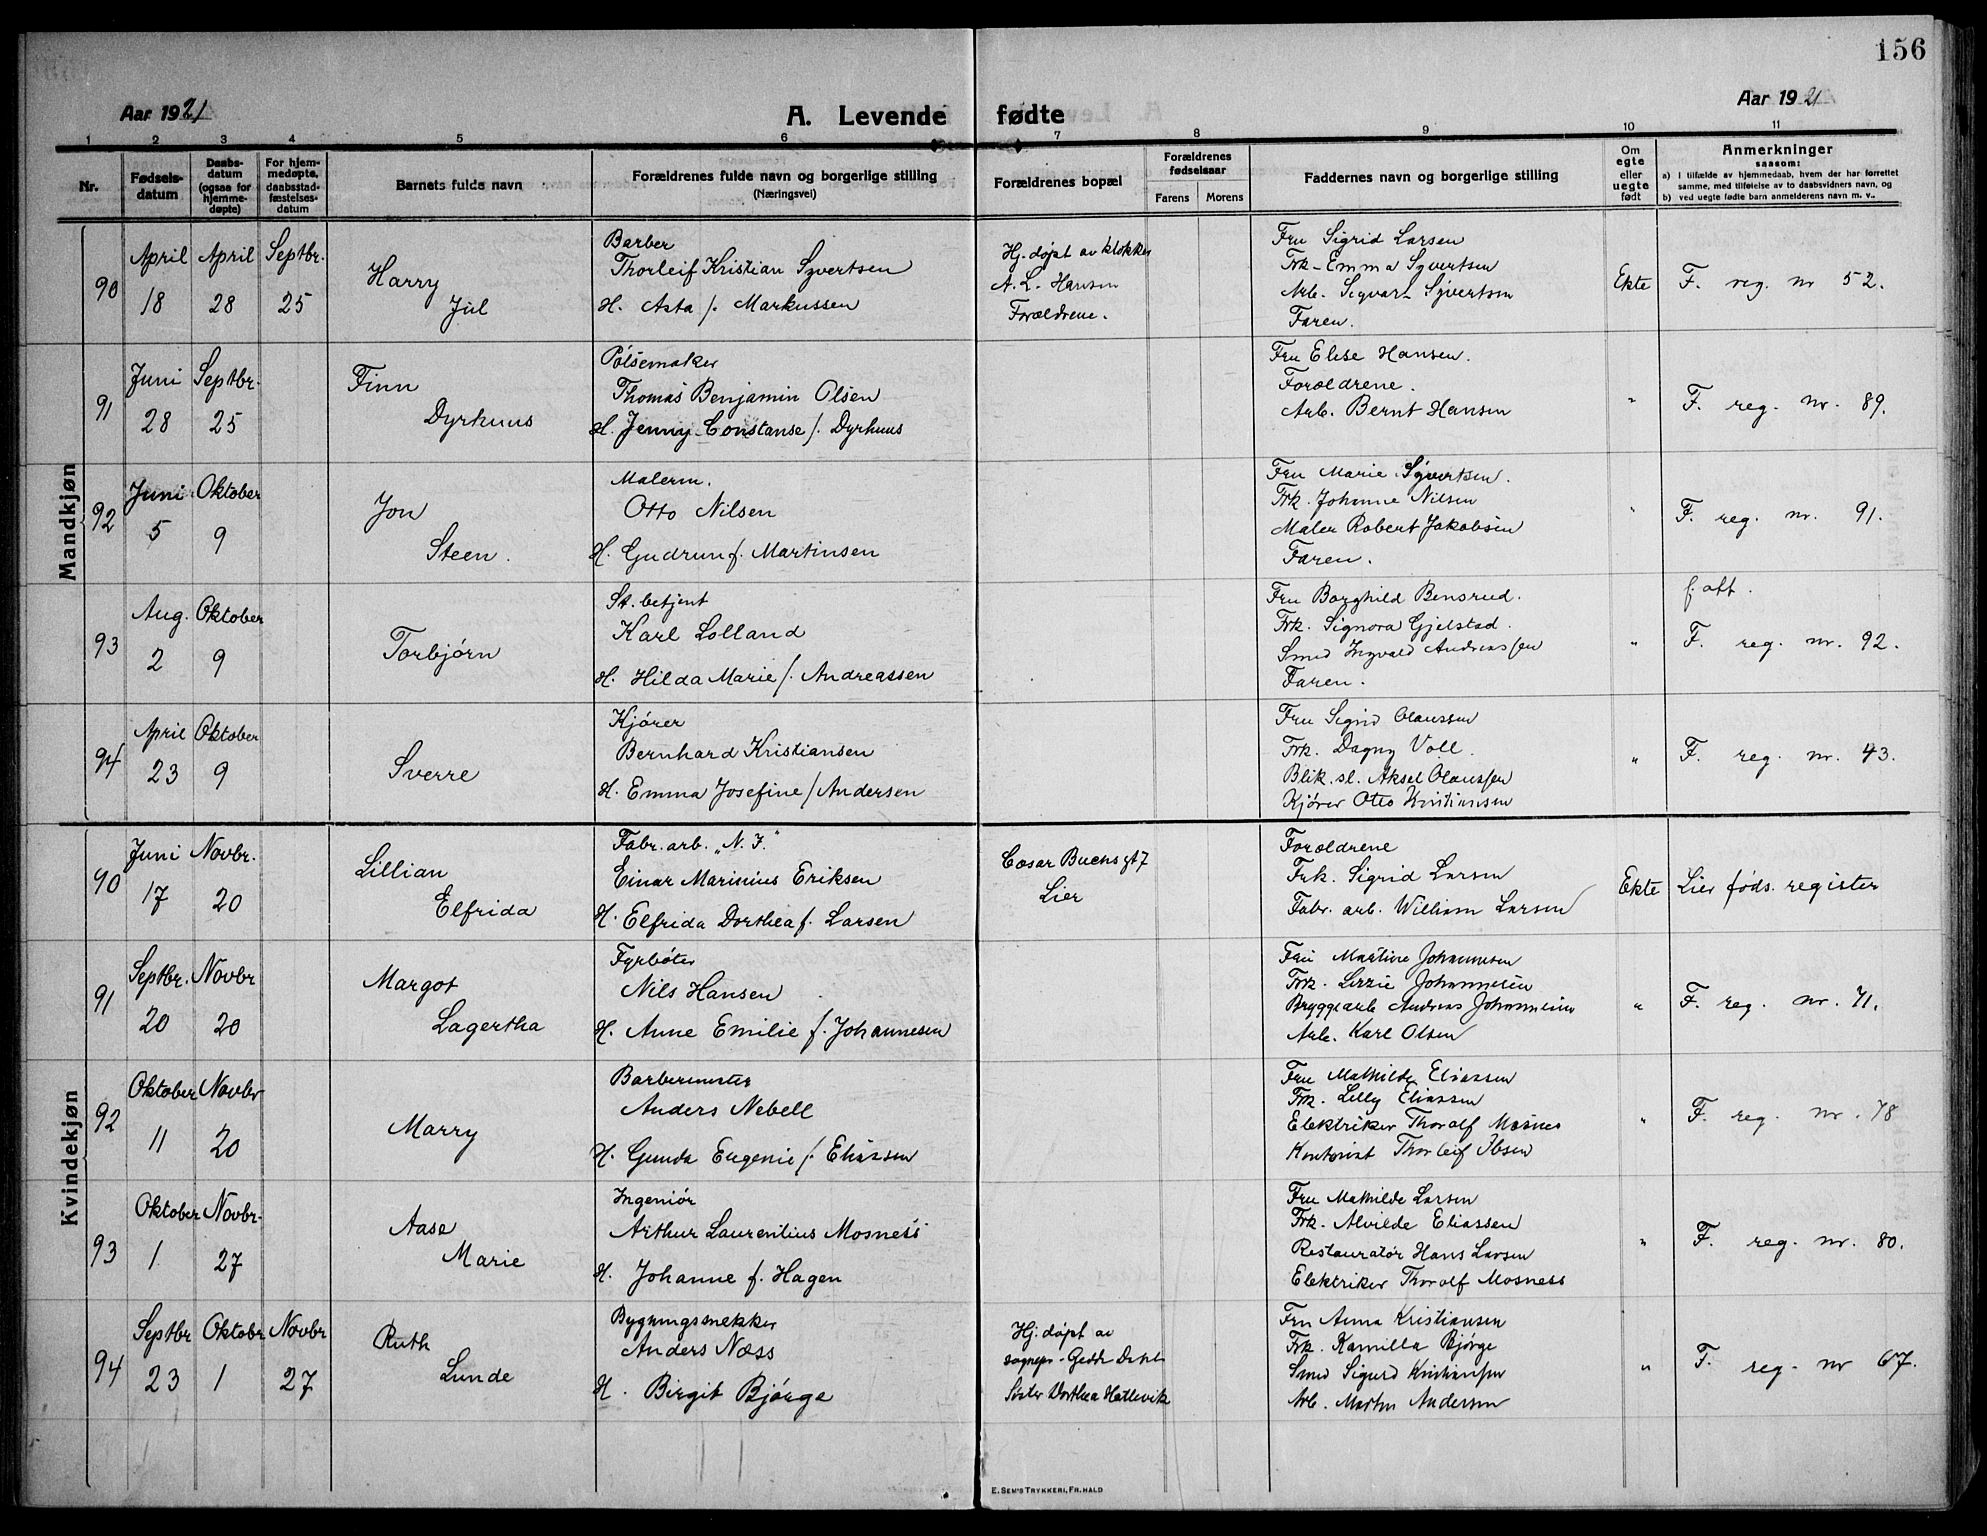 156
Aar 1921
A. Levende fødte
Aar 1921
1 2 3 4 5 6 7 8 9 10 11
Nr.
Fødsels-
datum
Daabs-
datum
(ogsaa for
hjemme-
døpte)
For hjem-
medøpte,
daabsstad-
fæstelses-
datum
Barnets fulde navn
Forældrenes fulde navn og borgerlige stilling
(Næringsvei)
Forældrenes bopæl
Forældrenes
fødselsaar
Farens Morens
Faddernes navn og borgerlige stilling
Om
egte
eller
uegte
født
Anmerkninger
saasom:
a) I tilfælde av hjemmedaab, hvem der har forrettet
samme, med tilføielse av to daabsvidners navn, og
b) ved uegte fødte barn anmelderens navn m. v..
Mandkjøn
90
April 18
April 28
Septbr. 25
Harry
Jul
Barber
Thorleif Kristian Syvertsen
H. Asta f. Markussen
Hj. døpt av klokker
A. L. Hansen
Forældrene.
Fru Sigrid Larsen
Frk. Emma Syvertsen
Arb. Sigvart Syvertsen
Faren.
Ekte
F. reg. nr 52.
91
Juni 28
Septbr. 25
Finn
Dyrhuus
Pølsemaker
Thomas Benjamin Olsen
H. Jenny Constanse f. Dyrhuus
Fru Elise Hansen.
Forældrene.
Arb. Bernt Hansen
"
F. reg. nr. 89.
92
Juni 5
Oktober 9
Jon
Steen.
Malerm.
Otto Nilsen
H. Gudrun f. Martinsen
Fru Marie Syvertsen.
Frk. Johanne Nilsen
Maler Robert Jakobsen
Faren.
"
F. reg. nr. 91.
93
Aug. 2
Oktober 9
Torbjørn
St. betjent
Karl Lolland
H. Hilda Marie f. Andreassen
Fru Borghild Bensrud.
Frk. Signora Gjelstad.
Smed Ingvald Andreassen
Faren.
"
f. att.
F. reg. nr. 92.
94
April 23
Oktober 9
Sverre
Kjører
Bernhard Kristiansen
H. Emma Josefine f. Andersen
Fru Sigrid Olaussen
Frk. Dagny Voll.
Blik. sl. Aksel Olaussen
Kjører Otto Kristiansen
"
F. reg. nr. 43.
Kvindekjøn
90
Juni 17
Novbr. 20
Lillian
Elfrida
Fabr. arb. „N. F."
Einar Marinius Eriksen
H. Elfrida Dorthea f. Larsen
Cæsar Buchs gt 7
Lier
Forældrene
Frk. Sigrid Larsen
Fabr. arb. William Larsen
Ekte
Lier føds. register
91
Septbr. 20
Novbr 20
Margot
Lagertha
Fyrbøter
Nils Hansen
H. Anne Emilie f. Johannesen
Fru Martine Johannesen
Frk. Lizzie Johannesen
Bryggearb Andreas Johannesen
Arb. Karl Olsen
"
F. reg. nr. 71.
92
Oktober 11
Novbr 20
Marry
Barbermester
Anders Nebell
H. Gunda Eugenie f. Eliassen
Fru Mathilde Eliassen
Frk. Lilly Eliassen
Elektriker Thoralf Mosnes
Kontorist Thorleif Ibsen
"
F. reg. nr. 78
93
Oktober 1
Novbr. 27
Aase
Marie
Ingeniør
Arthur Laurentius Mosness
H. Johanne f. Hagen
Fru Mathilde Larsen
Frk. Alvilde Eliassen
Restauratør Hans Larsen
Elektriker Thoralf Mosness
"
F. reg. nr. 80.
94
Septbr 23
Oktobr 1
Novbr 27
Ruth
Lunde
Bygningssnekker
Anders Næss
H. Birgit Bjørge
Hj. døpt av
sognepr. Gedde Dahl
Søster Dorthea Hatlevik
Fru Anna Kristiansen
Frk. Kamilla Bjørge
Smed Sigurd Kristiansen
Arb. Martin Andersen
"
F. reg. nr 67.
E. SEM'S TRYKKERI, FR.HALD